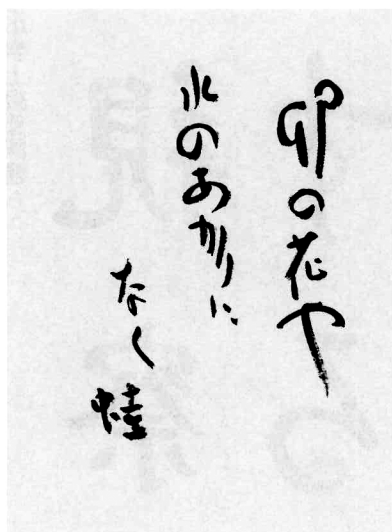 卯の花や
水のあかりに
なく蛙